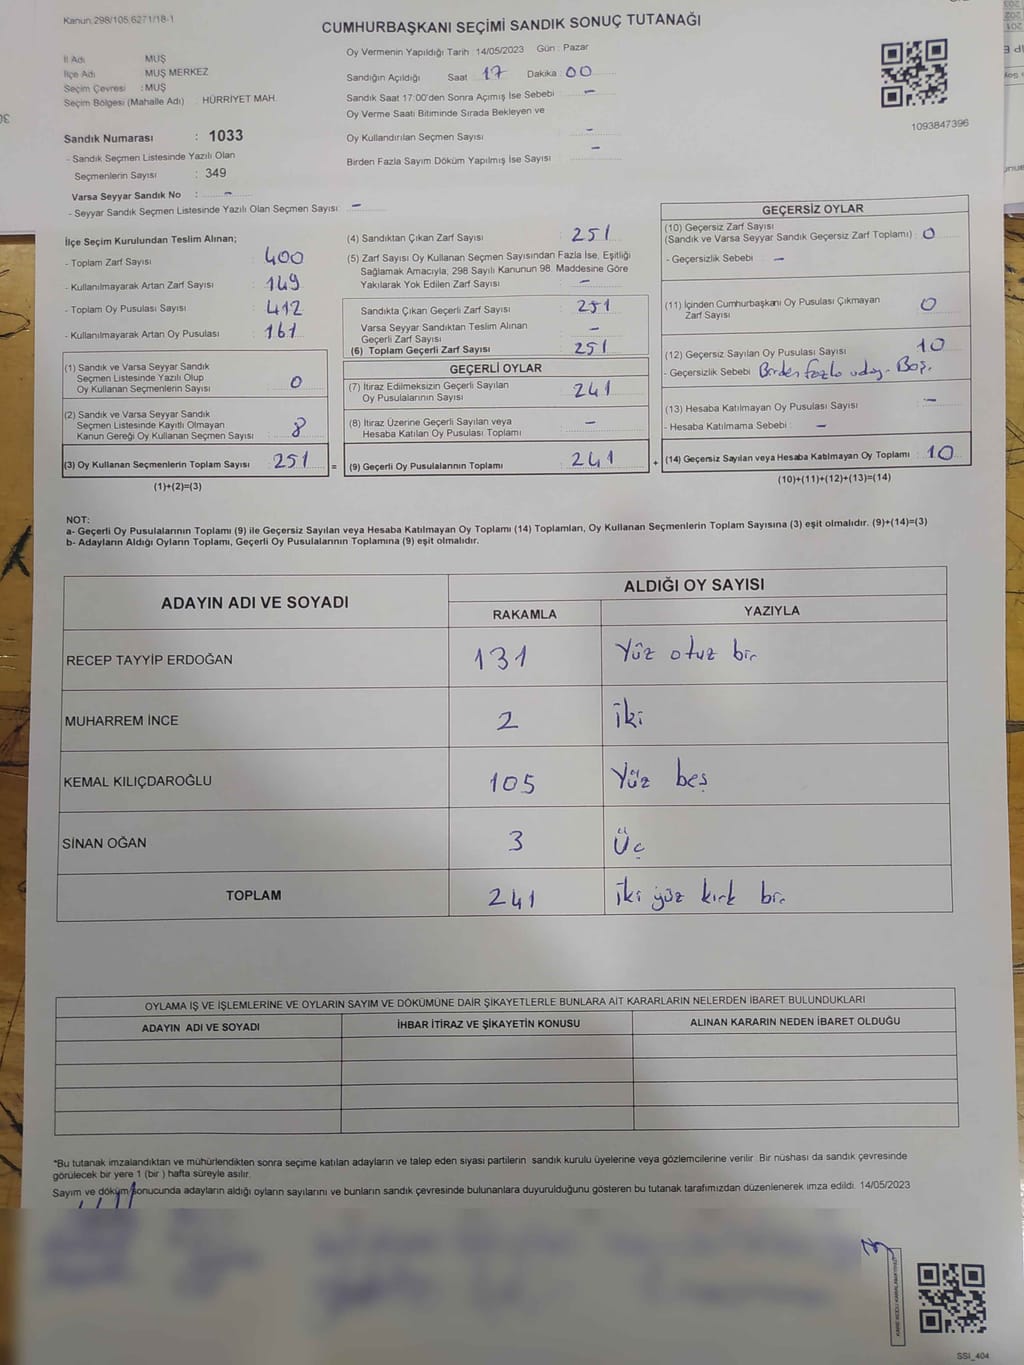 Kanun:298/105,6271/18-1
CUMHURBAŞKANI SEÇİMİ SANDIK SONUÇ TUTANAĞI
İl Adı MUŞ
İlçe Adı MUŞ MERKEZ
Seçim Çevresi : MUŞ
Seçim Bölgesi (Mahalle Adı) : HÜRRİYET MAH.
Sandık Numarası : 1033
- Sandık Seçmen Listesinde Yazılı Olan
Seçmenlerin Sayısı : 349
Varsa Seyyar Sandık No : -
- Seyyar Sandık Seçmen Listesinde Yazılı Olan Seçmen Sayısı: -
Oy Vermenin Yapıldığı Tarih : 14/05/2023 Gün : Pazar
Sandığın Açıldığı Saat 17 Dakika : 00
Sandık Saat 17:00'den Sonra Açımış İse Sebebi : -
Oy Verme Saati Bitiminde Sırada Bekleyen ve
Oy Kullandırılan Seçmen Sayısı : -
Birden Fazla Sayım Döküm Yapılmış İse Sayısı : -
1093847396
İlçe Seçim Kurulundan Teslim Alınan;
- Toplam Zarf Sayısı : 400
- Kullanılmayarak Artan Zarf Sayısı : 149
- Toplam Oy Pusulası Sayısı : 412
- Kullanılmayarak Artan Oy Pusulası : 161
(1) Sandık ve Varsa Seyyar Sandık
Seçmen Listesinde Yazılı Olup
Oy Kullanan Seçmenlerin Sayısı : 0
(2) Sandık ve Varsa Seyyar Sandık
Seçmen Listesinde Kayıtlı Olmayan
Kanun Gereği Oy Kullanan Seçmen Sayısı : 8
(3) Oy Kullanan Seçmenlerin Toplam Sayısı : 251
(1)+(2)=(3)
(4) Sandıktan Çıkan Zarf Sayısı : 251
(5) Zarf Sayısı Oy Kullanan Seçmen Sayısından Fazla İse, Eşitliği
Sağlamak Amacıyla, 298 Sayılı Kanunun 98. Maddesine Göre
Yakılarak Yok Edilen Zarf Sayısı : -
Sandıkta Çıkan Geçerli Zarf Sayısı : 251
Varsa Seyyar Sandıktan Teslim Alınan
Geçerli Zarf Sayısı : -
(6) Toplam Geçerli Zarf Sayısı : 251
GEÇERLİ OYLAR
(7) İtiraz Edilmeksizin Geçerli Sayılan
Oy Pusulalarının Sayısı : 241
(8) İtiraz Üzerine Geçerli Sayılan veya
Hesaba Katılan Oy Pusulası Toplamı : -
= (9) Geçerli Oy Pusulalarının Toplamı : 241 +
GEÇERSİZ OYLAR
(10) Geçersiz Zarf Sayısı
(Sandık ve Varsa Seyyar Sandık Geçersiz Zarf Toplamı) : 0
- Geçersizlik Sebebi : -
(11) İçinden Cumhurbaşkanı Oy Pusulası Çıkmayan
Zarf Sayısı : 0
(12) Geçersiz Sayılan Oy Pusulası Sayısı : 10
- Geçersizlik Sebebi : Birden fazla Boş.
(13) Hesaba Katılmayan Oy Pusulası Sayısı : -
- Hesaba Katılmama Sebebi : -
(14) Geçersiz Sayılan veya Hesaba Katılmayan Oy Toplamı : 10
(10)+(11)+(12)+(13)=(14)
NOT:
a- Geçerli Oy Pusulalarının Toplamı (9) ile Geçersiz Sayılan veya Hesaba Katılmayan Oy Toplamı (14) Toplamları, Oy Kullanan Seçmenlerin Toplam Sayısına (3) eşit olmalıdır. (9)+(14)=(3)
b- Adayların Aldığı Oyların Toplamı, Geçerli Oy Pusulalarının Toplamına (9) eşit olmalıdır.
ADAYIN ADI VE SOYADI
ALDIĞI OY SAYISI
RAKAMLA YAZIYLA
RECEP TAYYİP ERDOĞAN 131 Yüz otuz bir
MUHARREM İNCE 2 İki
KEMAL KILIÇDAROĞLU 105 Yüz beş
SİNAN OĞAN 3 Üç
TOPLAM 241 İki yüz kırk bir
OYLAMA İŞ VE İŞLEMLERİNE VE OYLARIN SAYIM VE DÖKÜMÜNE DAİR ŞİKAYETLERLE BUNLARA AİT KARARLARIN NELERDEN İBARET BULUNDUKLARI
ADAYIN ADI VE SOYADI İHBAR İTİRAZ VE ŞİKAYETİN KONUSU ALINAN KARARIN NEDEN İBARET OLDUĞU
*Bu tutanak imzalandıktan ve mühürlendikten sonra seçime katılan adayların ve talep eden siyasi partilerin sandık kurulu üyelerine veya gözlemcilerine verilir. Bir nüshası da sandık çevresinde
görülecek bir yere 1 (bir) hafta süreyle asılır.
Sayım ve döküm sonucunda adayların aldığı oyların sayılarını ve bunların sandık çevresinde bulunanlara duyurulduğunu gösteren bu tutanak tarafımızdan düzenlenerek imza edildi. 14/05/2023
SSI_404